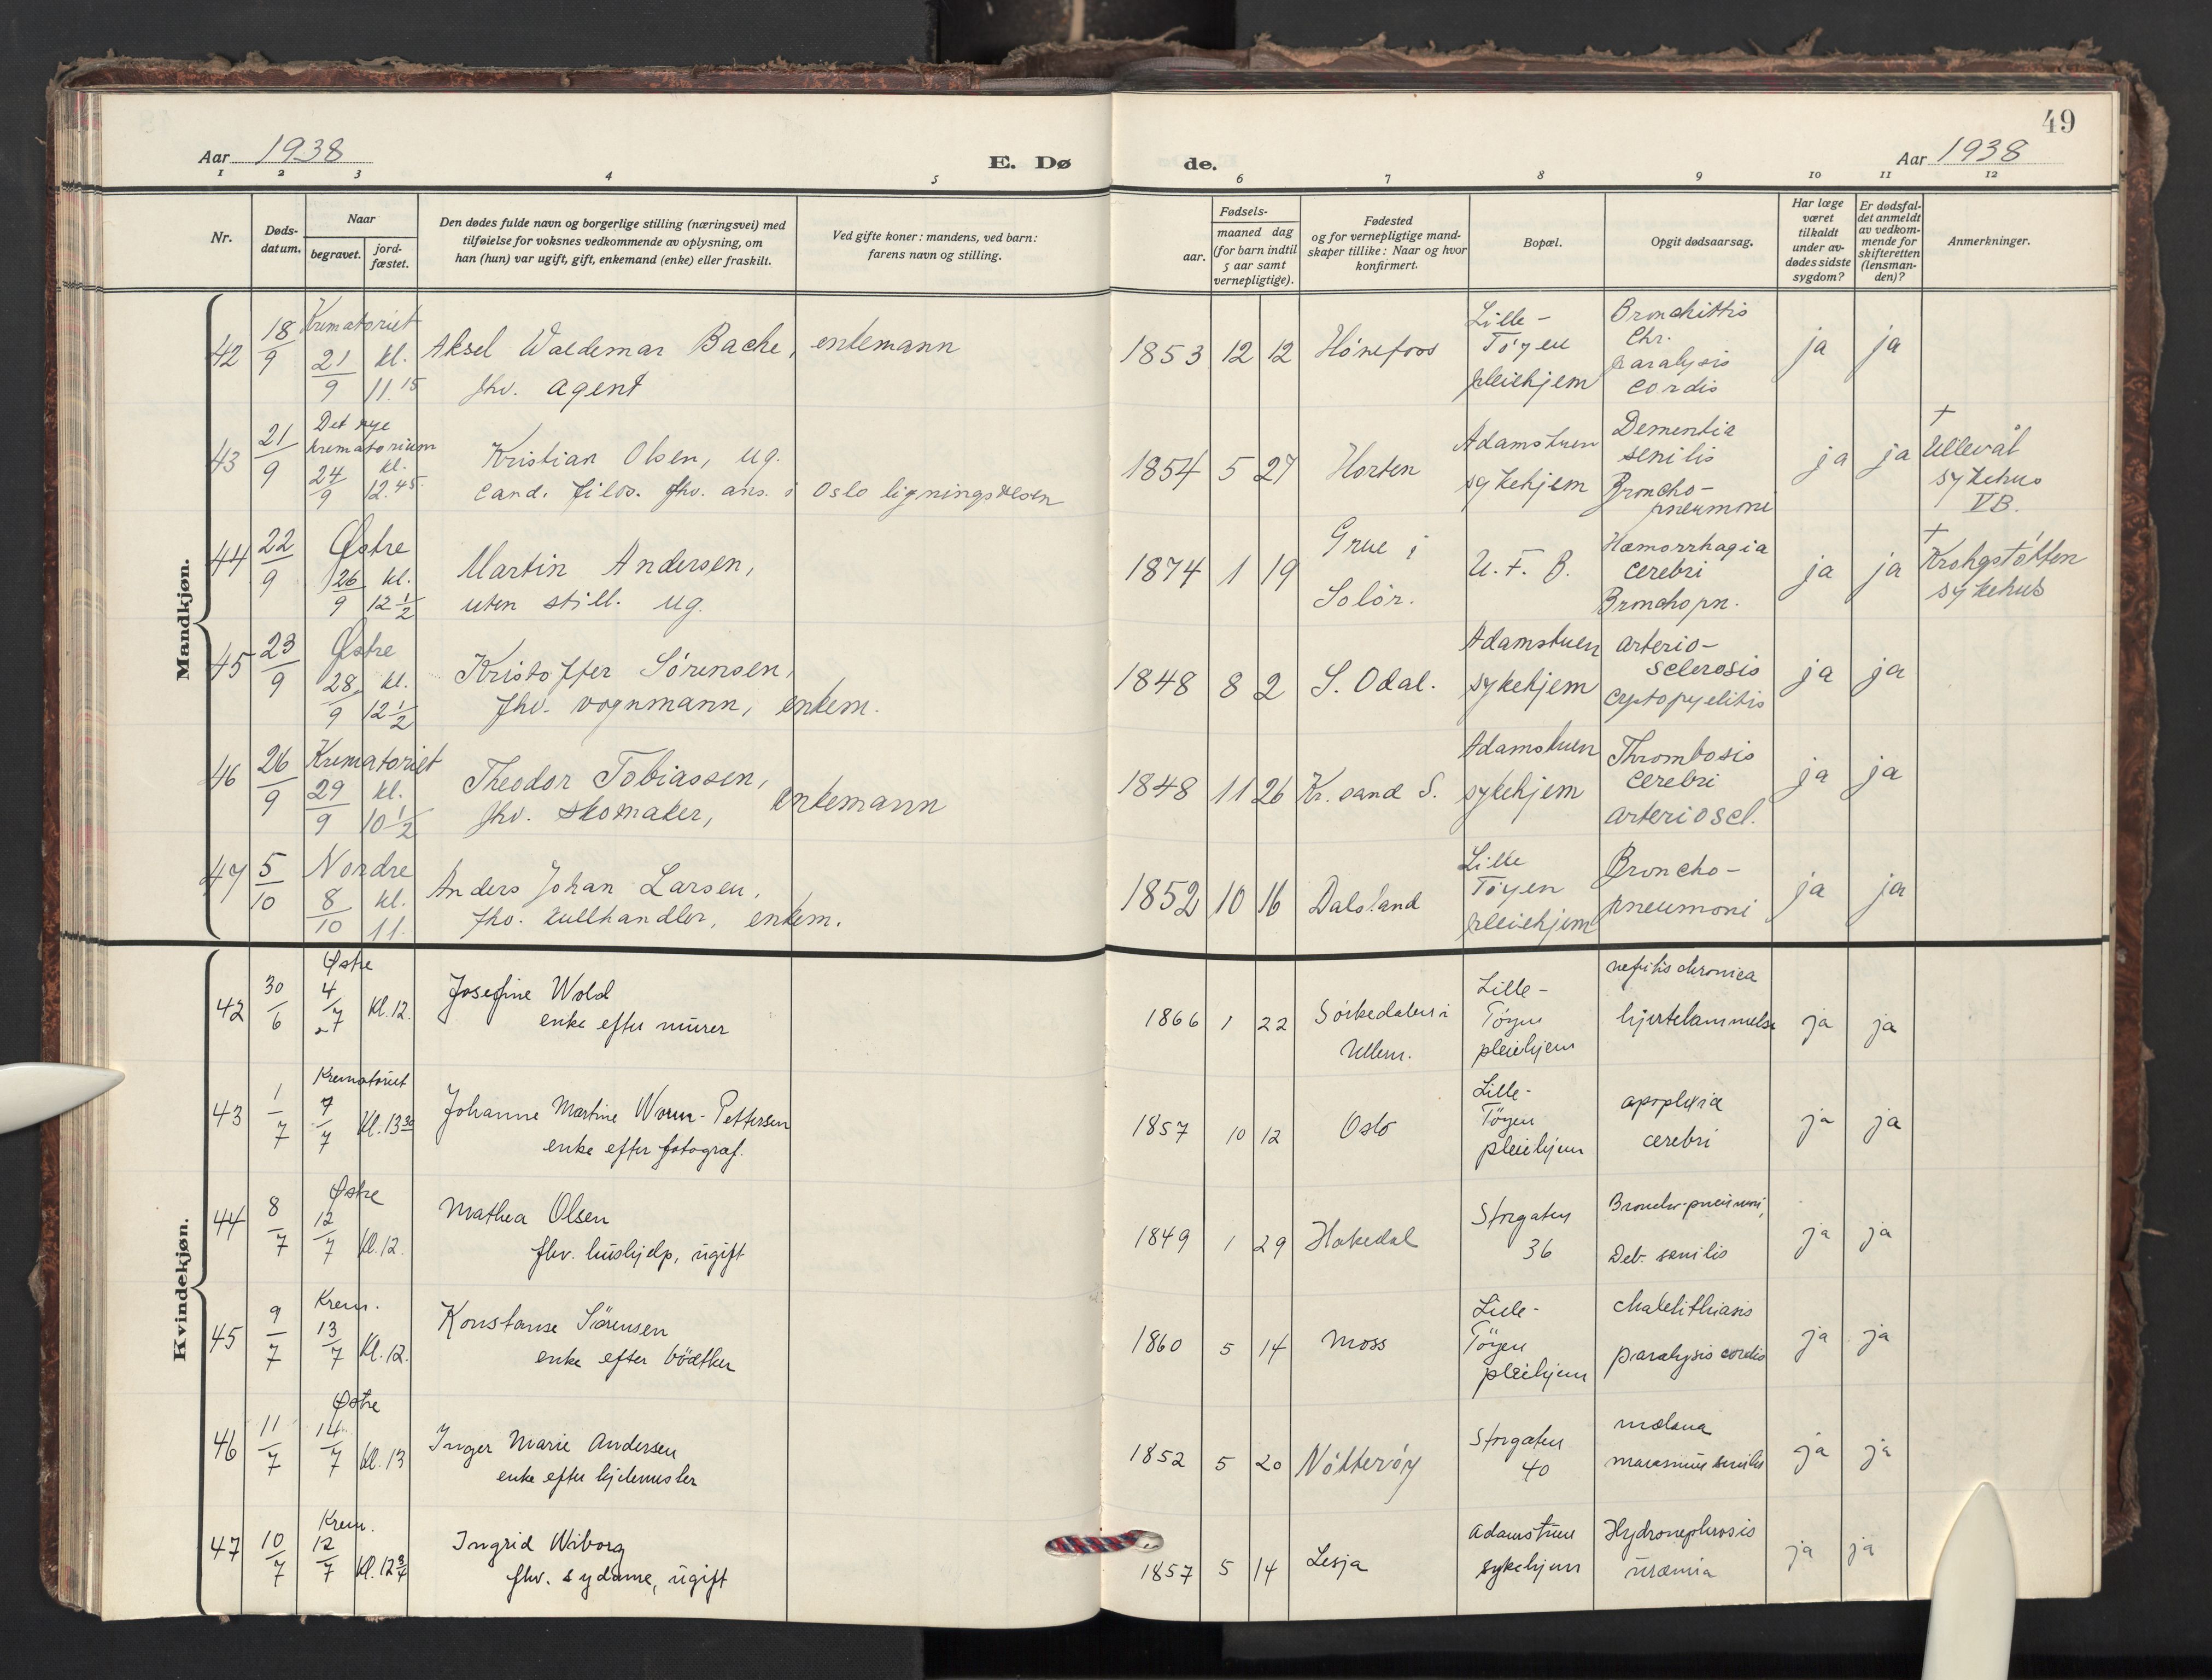 49
Aar 1938
E. Dø
de.
Aar 1938
1 2 3 4 5 6 7 8 9 10 11 12
Nr.
Døds-
datum.
Naar
begravet.
jord-
fæstet.
Den dødes fulde navn og borgerlige stilling (næringsvei) med
tilføielse for voksnes vedkommende av oplysning, om
han (hun) var ugift, gift, enkemand (enke) eller fraskilt.
Ved gifte koner: mandens, ved barn:
farens navn og stilling.
Fødsels-
aar.
maaned dag
(for barn indtil
5 aar samt
vernepligtige).
Fødested
og for vernepligtige mand-
skaper tillike: Naar og hvor
konfirmert.
Bopæl.
Opgit dødsaarsag.
Har læge
været
tilkaldt
under av-
dødes sidste
sygdom?
Er dødsfal-
det anmeldt
av vedkom-
mende for
skifteretten
(lensman-
den)?
Anmerkninger.
Mandkjøn.
42
18/9
Krematoriet
21/9 kl. 11.15
Aksel Waldemar Bache, enkemann
fhv. agent
1853 12 12
Hönefoss
Lille-
Töyen
pleiehjem
Bronchittis
Chr.
paralysis
cordis
ja ja
43
21/9
Det nye
krematorium
24/9 kl. 12.45
Kristian Olsen, ug.
Cand. filos. fhv. ans. i Oslo ligningsvesen
1854 5 27
Horten
Adamstuen
sykehjem
Dementia
senilis
Broncho-
pneumoni
ja ja
†
Ullevål
sykehus
VB.
44
22/9
Østre
26/9 kl. 12 1/2
Martin Andersen,
uten still. ug.
1874 1 19
Grue i
Solör.
U. F. B.
Hæmorrhagia
cerebri
Bronchopn.
ja ja
†
Krohgstötten
sykehus
45
23/9
Østre
28/9 kl. 12 1/2
Kristoffer Sörensen,
fhv. vognmann, enkem.
1848 8 2
S. Odal.
Adamstuen
sykehjem
arterio-
sclerosis
Cystopyelitis
ja ja
46
26/9
Krematoriet
29/9 kl. 10 1/2
Theodor Tobiassen,
fhv. skomaker, enkemann
1848 11 26
Kr. sand S.
Adamstuen
sykehjem
Thrombosis
cerebri
arterioscl.
ja ja
47
5/10
Nordre
8/10 kl. 11.
Anders Johan Larsen,
fhv. kullhandler, enkem.
1852 10 16
Dalsland
Lille
Töyen
pleiehjem
Broncho-
pneumoni
ja ja
Kvindekjøn.
42
30/6
Østre
4/7 Kl. 12.
Josefine Wold
enke efter murer
1866 1 22
Sörkedalen i
Ullern.
Lille-
Töyen
pleiehjem
nefritis chronica
hjertelammelse
ja ja
43
1/7
Krematoriet
7/7 Kl. 13 30
Johanne Martine Worm-Pettersen
enke efter fotograf.
1857 10 12
Oslo
Lille-
Töyen
pleiehjem
apoplexia
cerebri
ja ja
44
8/7
Østre
12/7 Kl. 12.
Mathea Olsen
fhv. hushjelp, ugift
1849 1 29
Hakedal
Storgaten
36
Broncho-pneumoni,
Deb. senilis
ja ja
45
9/7
Krem.
13/7 Kl. 12.
Konstanse Sörensen
enke efter bödtker
1860 5 14
Moss
Lille-
Töyen
pleiehjem
cholelithiasis
paralysis cordis
ja ja
46
11/7
Østre
14/7 Kl. 13
Inger Marie Andersen
enke efter
1852 5 20
Nötteröy
Storgaten
40
melæna
marasmus senilis
ja ja
47
10/7
Krem.
12/7 Kl. 12 3/4
Ingrid Wiborg
fhv. sydame, ugift
1857 5 14
Lesja
Adamstuen
sykehjem
Hydronephrosis
uræmia
ja ja